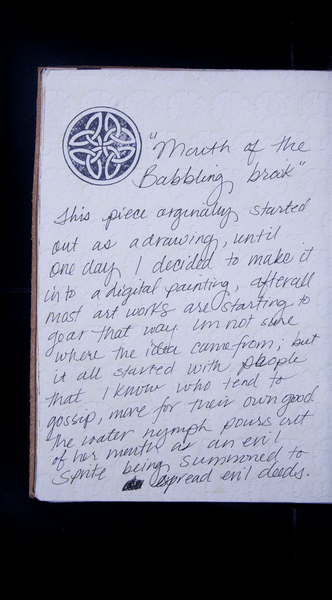 "Mouth of the
Babbling brook"
This piece orginally started
out as a drawing, until
one day I decided to make it
into a digital painting, afterall
most art works are starting to
goar that way. Im not sure
where the idea came from; but
it all started with people
that I know who tend to
gossip, more for their own good.
the water nymph pours out
of her mouth as an evil
Sprite being summoned to
spread evil deeds.